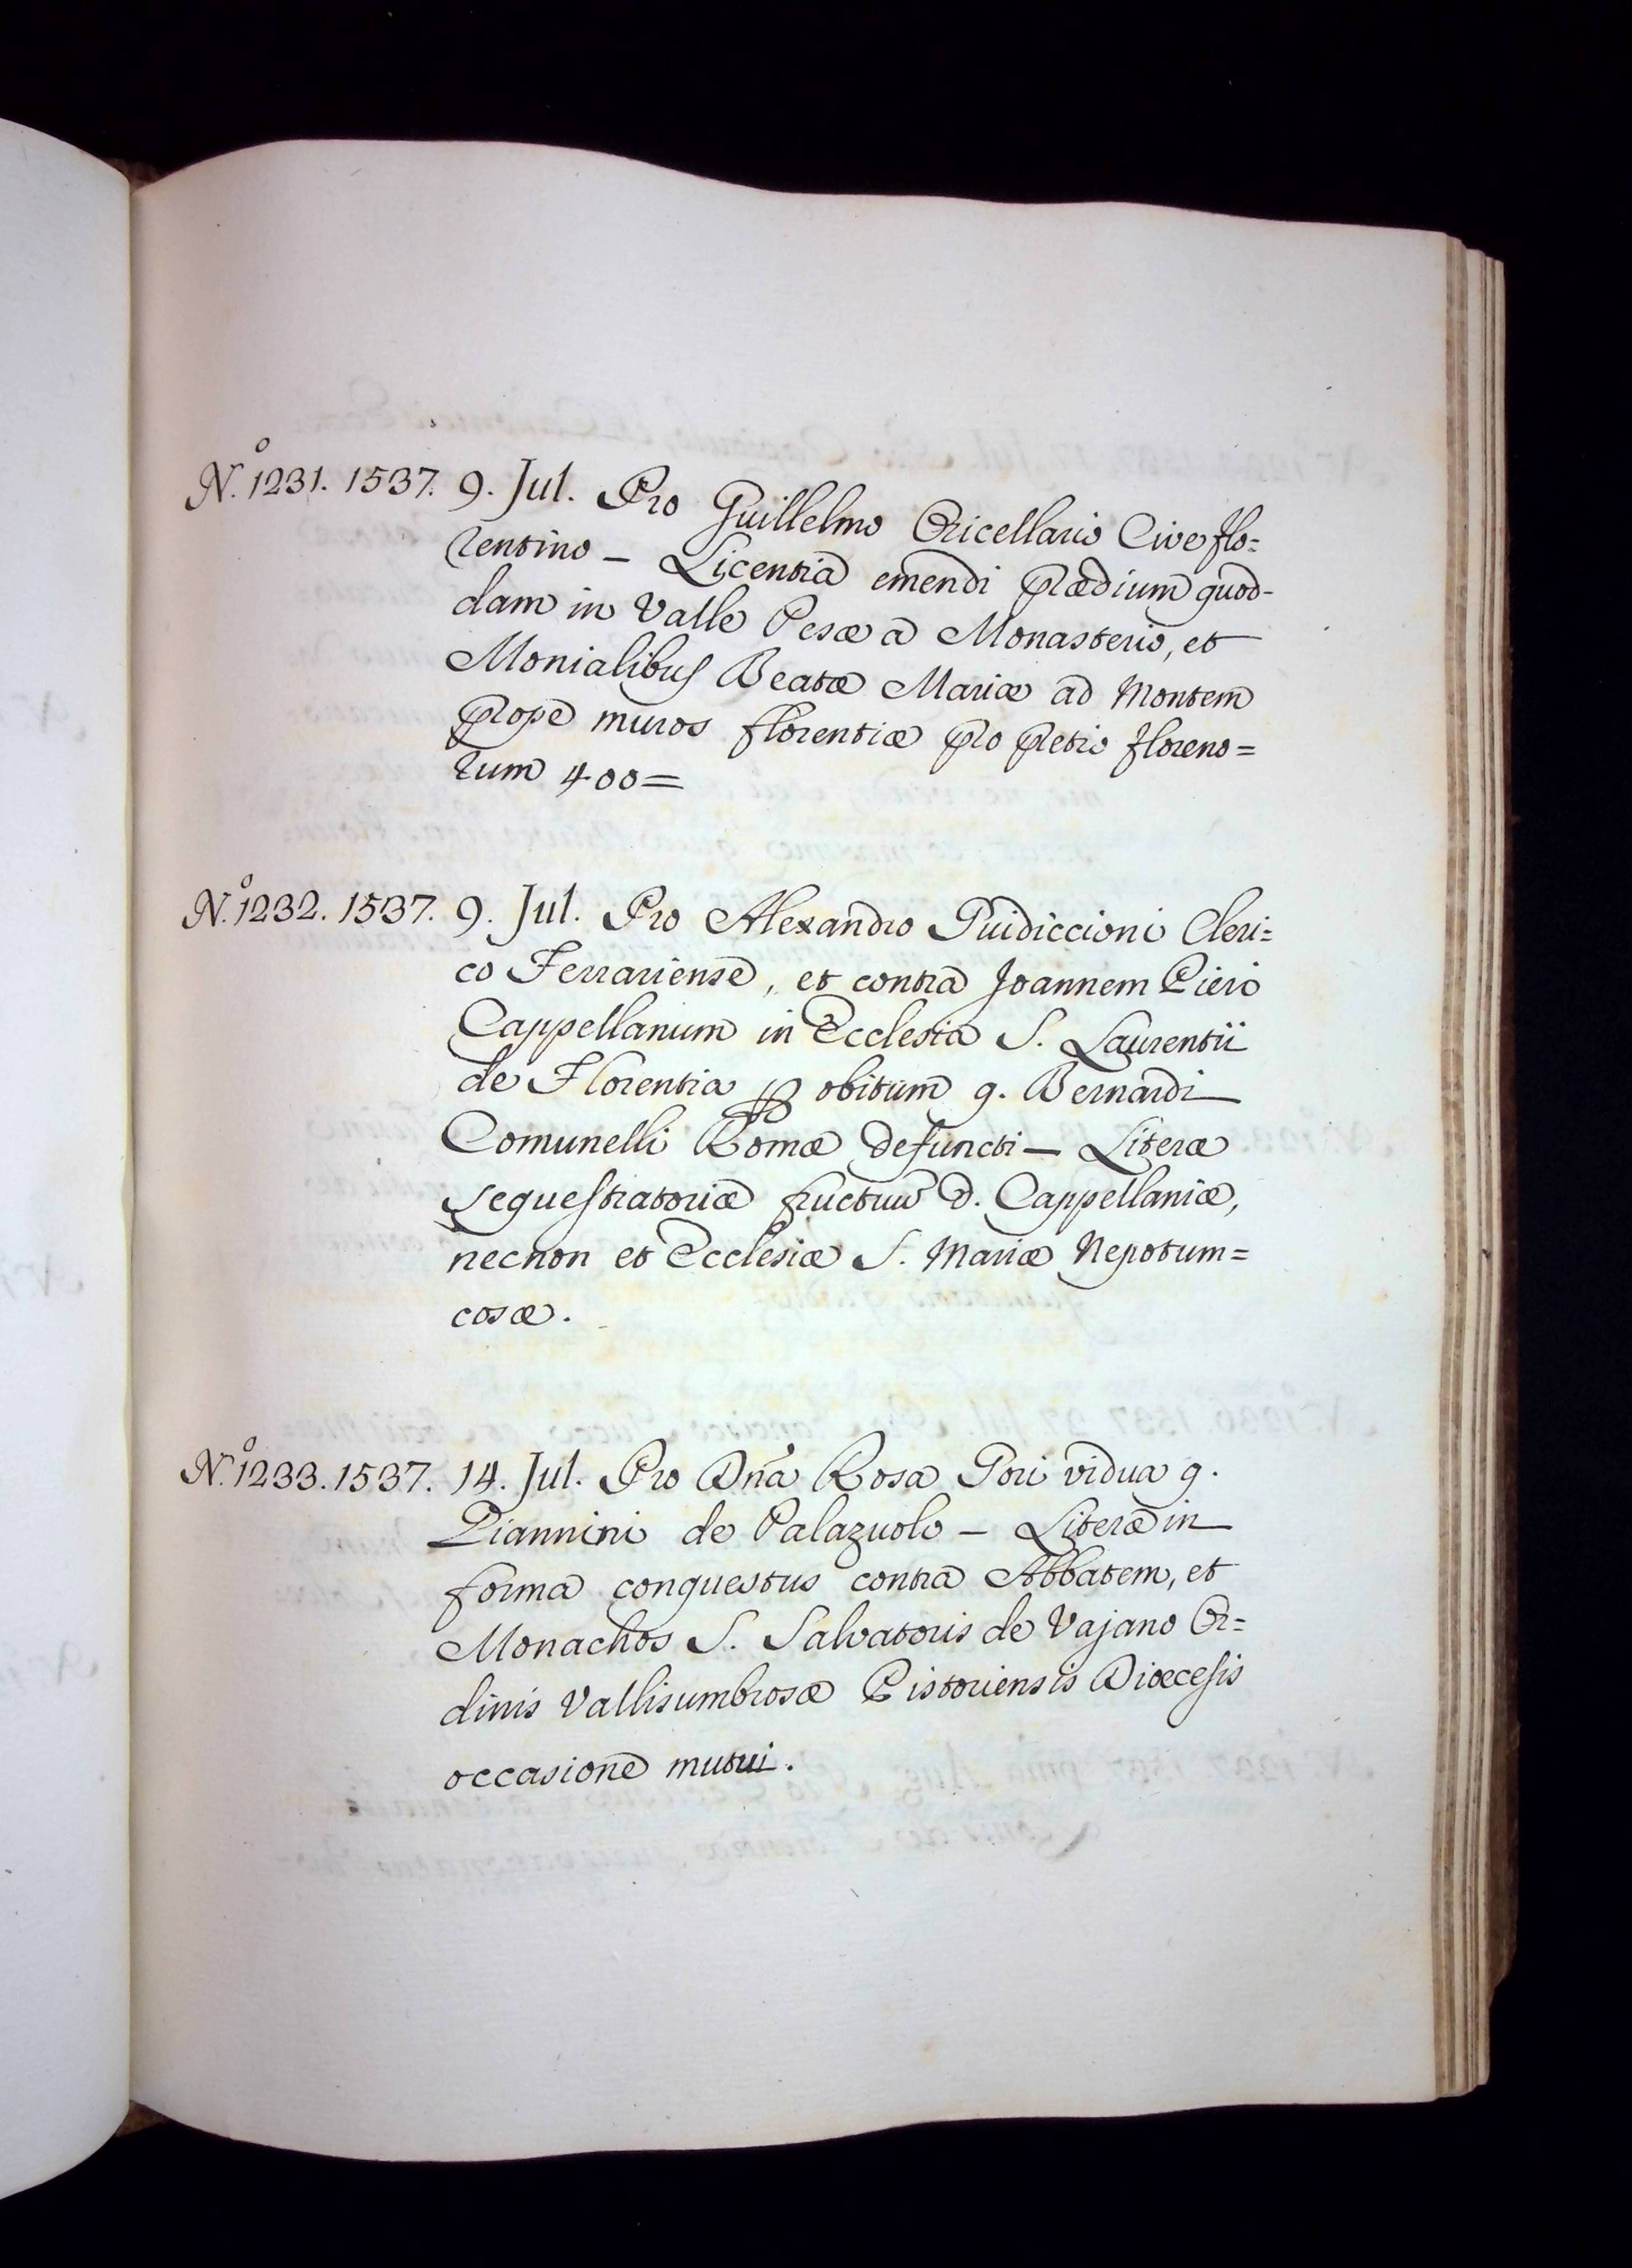 N.º 1231. 1537. 9. Jul. Pro Guillelmo Oricellario Cive flo=
rentino – Licentia emendi prædium quod-
dam in Valle Pesæ a Monasterio, et
Monialibus Beatæ Mariæ ad Montem
prope muros florentiæ pro pretio floreno=
rum 400=
N.º 1232. 1537. 9. Jul. Pro Alexandro Guidiccioni Cleri=
co Ferrariense, et contra Joannem Pieri
Cappellanum in Ecclesia S. Laurentii
de Florentia ꝑ obitum q. Bernardi
Comunelli Romæ defuncti – Literæ
sequestratoriæ fructuū d. Cappellaniæ,
necnon et Ecclesiæ S. Mariæ Nepotum=
cosæ.
N.º 1233. 1537. 14. Jul. Pro Dñа Rosa Gori vidua q.
Giannini de Palazuolo – Literæ in
forma conquestus contra Abbatem, et
Monachos S. Salvatoris de Vajano Or=
dinis Vallisumbrosæ Pistoriensis Diœcesis
occasione mutui.